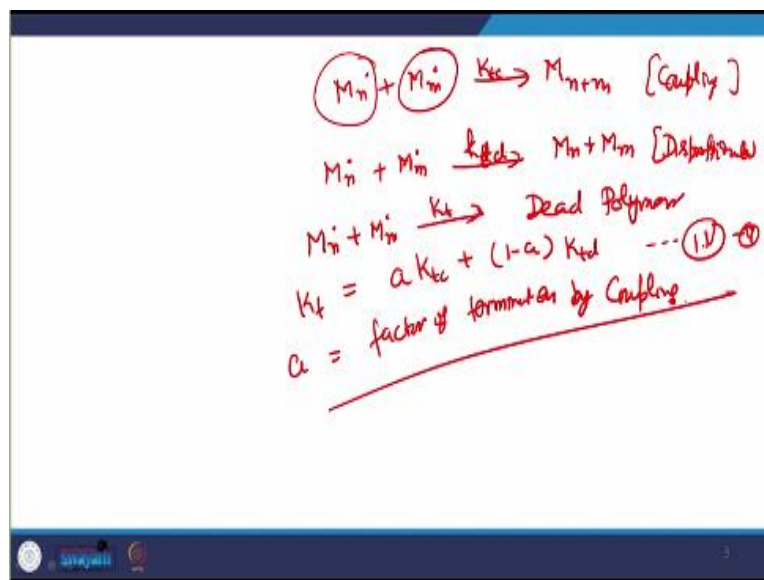 Mn• + Mm• Ktc→ Mn+m [Coupling]
Mn• + Mm• ktd→ Mn + Mm
Mn• + Mm• Kt→ Dead Polymer
Kt = a Ktc + (1-a) Ktd ---
a = factor of termination by Coupling.
swayam
3